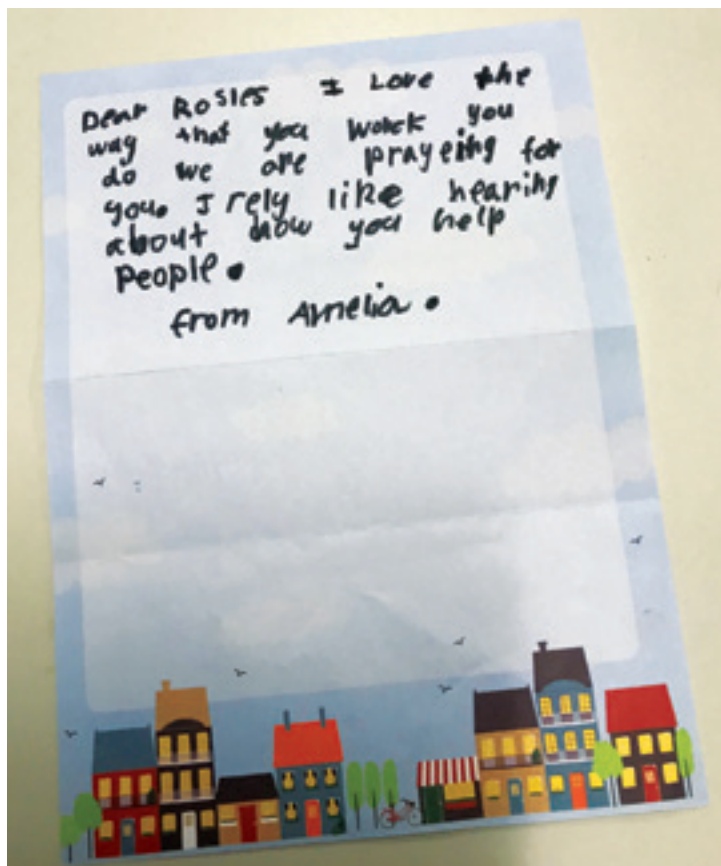 Dear Rosies I Love the
way that you worck you
do we are prayeing for
you. I rely like hearing
about how you help
people.
from Amelia.